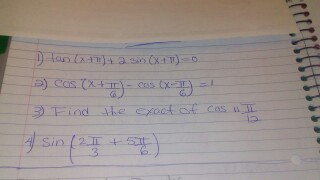 1) tan (x+π) + 2 sin (x+π) = 0
2) cos (x+π/6) - cos (x-π/6) = 1
3) Find the exact of cos 11 π/12
4) sin (2π/3 + 5π/6)